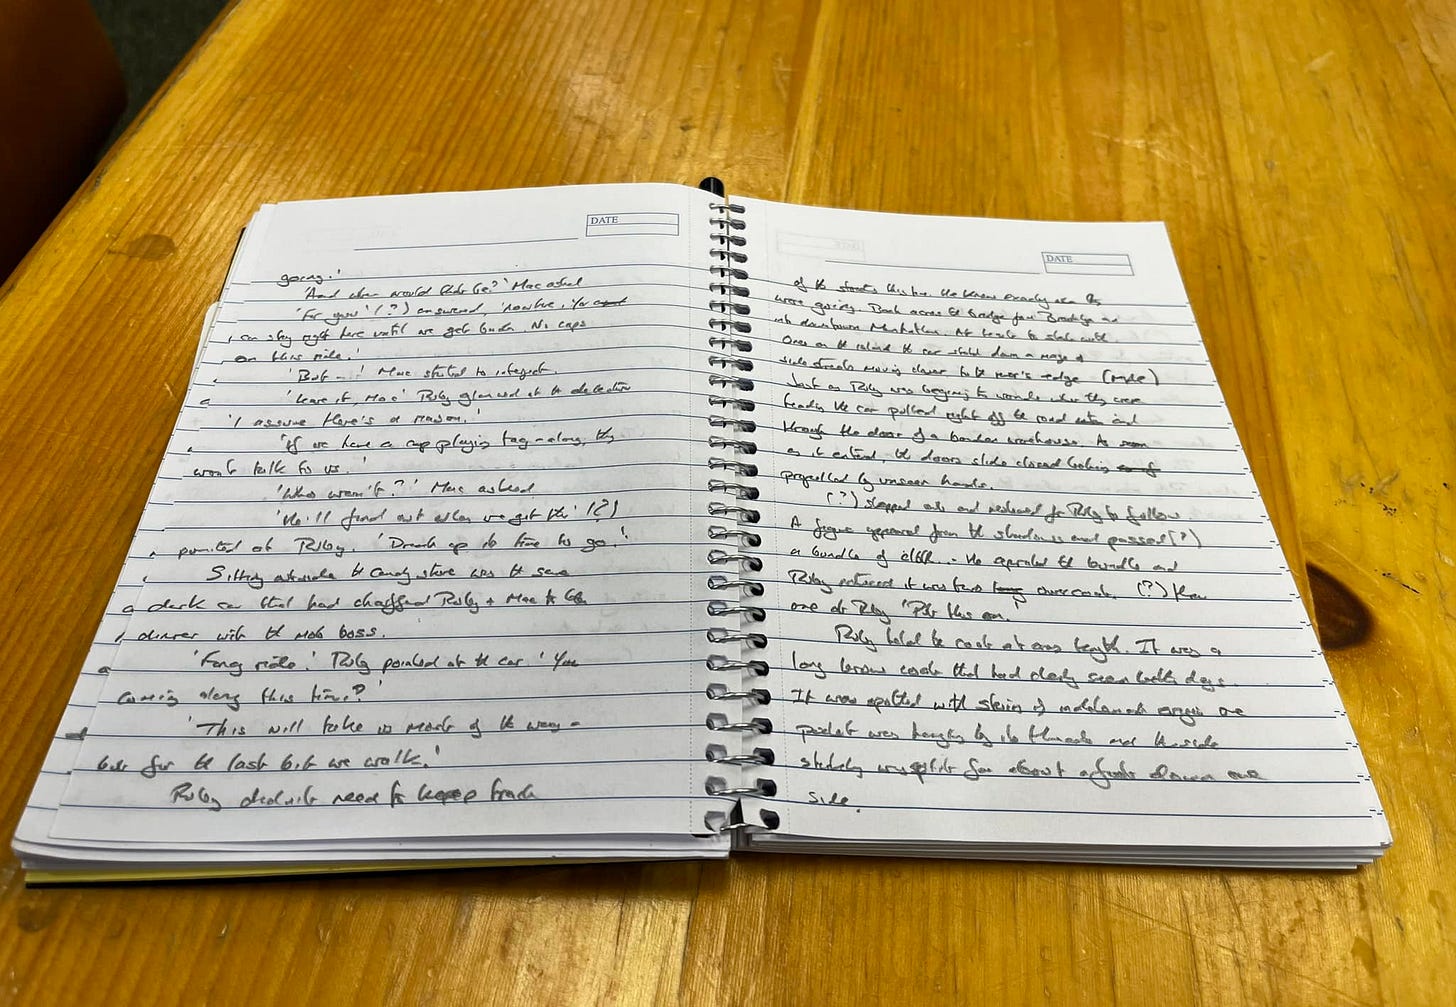 DATE
going.'
'And when would that be?' Mac asked
'For you' (?) answered, 'nowhere. You
can stay right here until we get back. No cops
on this ride.'
'But –' Mac started to interject.
'Leave it, Mac' Riley glanced at the detective
'I assume there's a reason.'
'If we have a cop playing tag-along, they
won't talk to us.'
'Who won't?' Mac asked.
'We'll find out when we get there' (?)
pointed at Riley. 'Drink up its time to go.'
Sitting outside the candy store was the same
dark car that had Riley + Mac to
dinner with the mob boss.
'Fancy ride.' Riley pointed at the car. 'You
coming along this time?'
'This will take us most of the way –
but for the last bit we walk.'
Riley didn't need to keep track
DATE
of the streets this time. He knew exactly where they
were going. Back across the bridge from Brooklyn and
into downtown Manhattan. At least to start with.
Once on the island the car down a maze of
side streets moving closer to the river's edge. (more)
Just as Riley was beginning to wonder where they were
heading the car pulled right off the road and
through the door of a warehouse. As soon
as it entered, the doors slide closed
propelled by unseen hands.
(?) stepped out and for Riley to follow.
A figure appeared from the shadows and passed (?)
a bundle of cloth. He the bundle and
Riley noticed it was two overcoats. (?) threw
one at Riley 'Put this on.'
Riley held the coat at arms length. It was a
long brown coat that had clearly seen better days.
It was spotted with stains of origin one
pocket was hanging by its threads and the side
was split for about a foot down one
side.